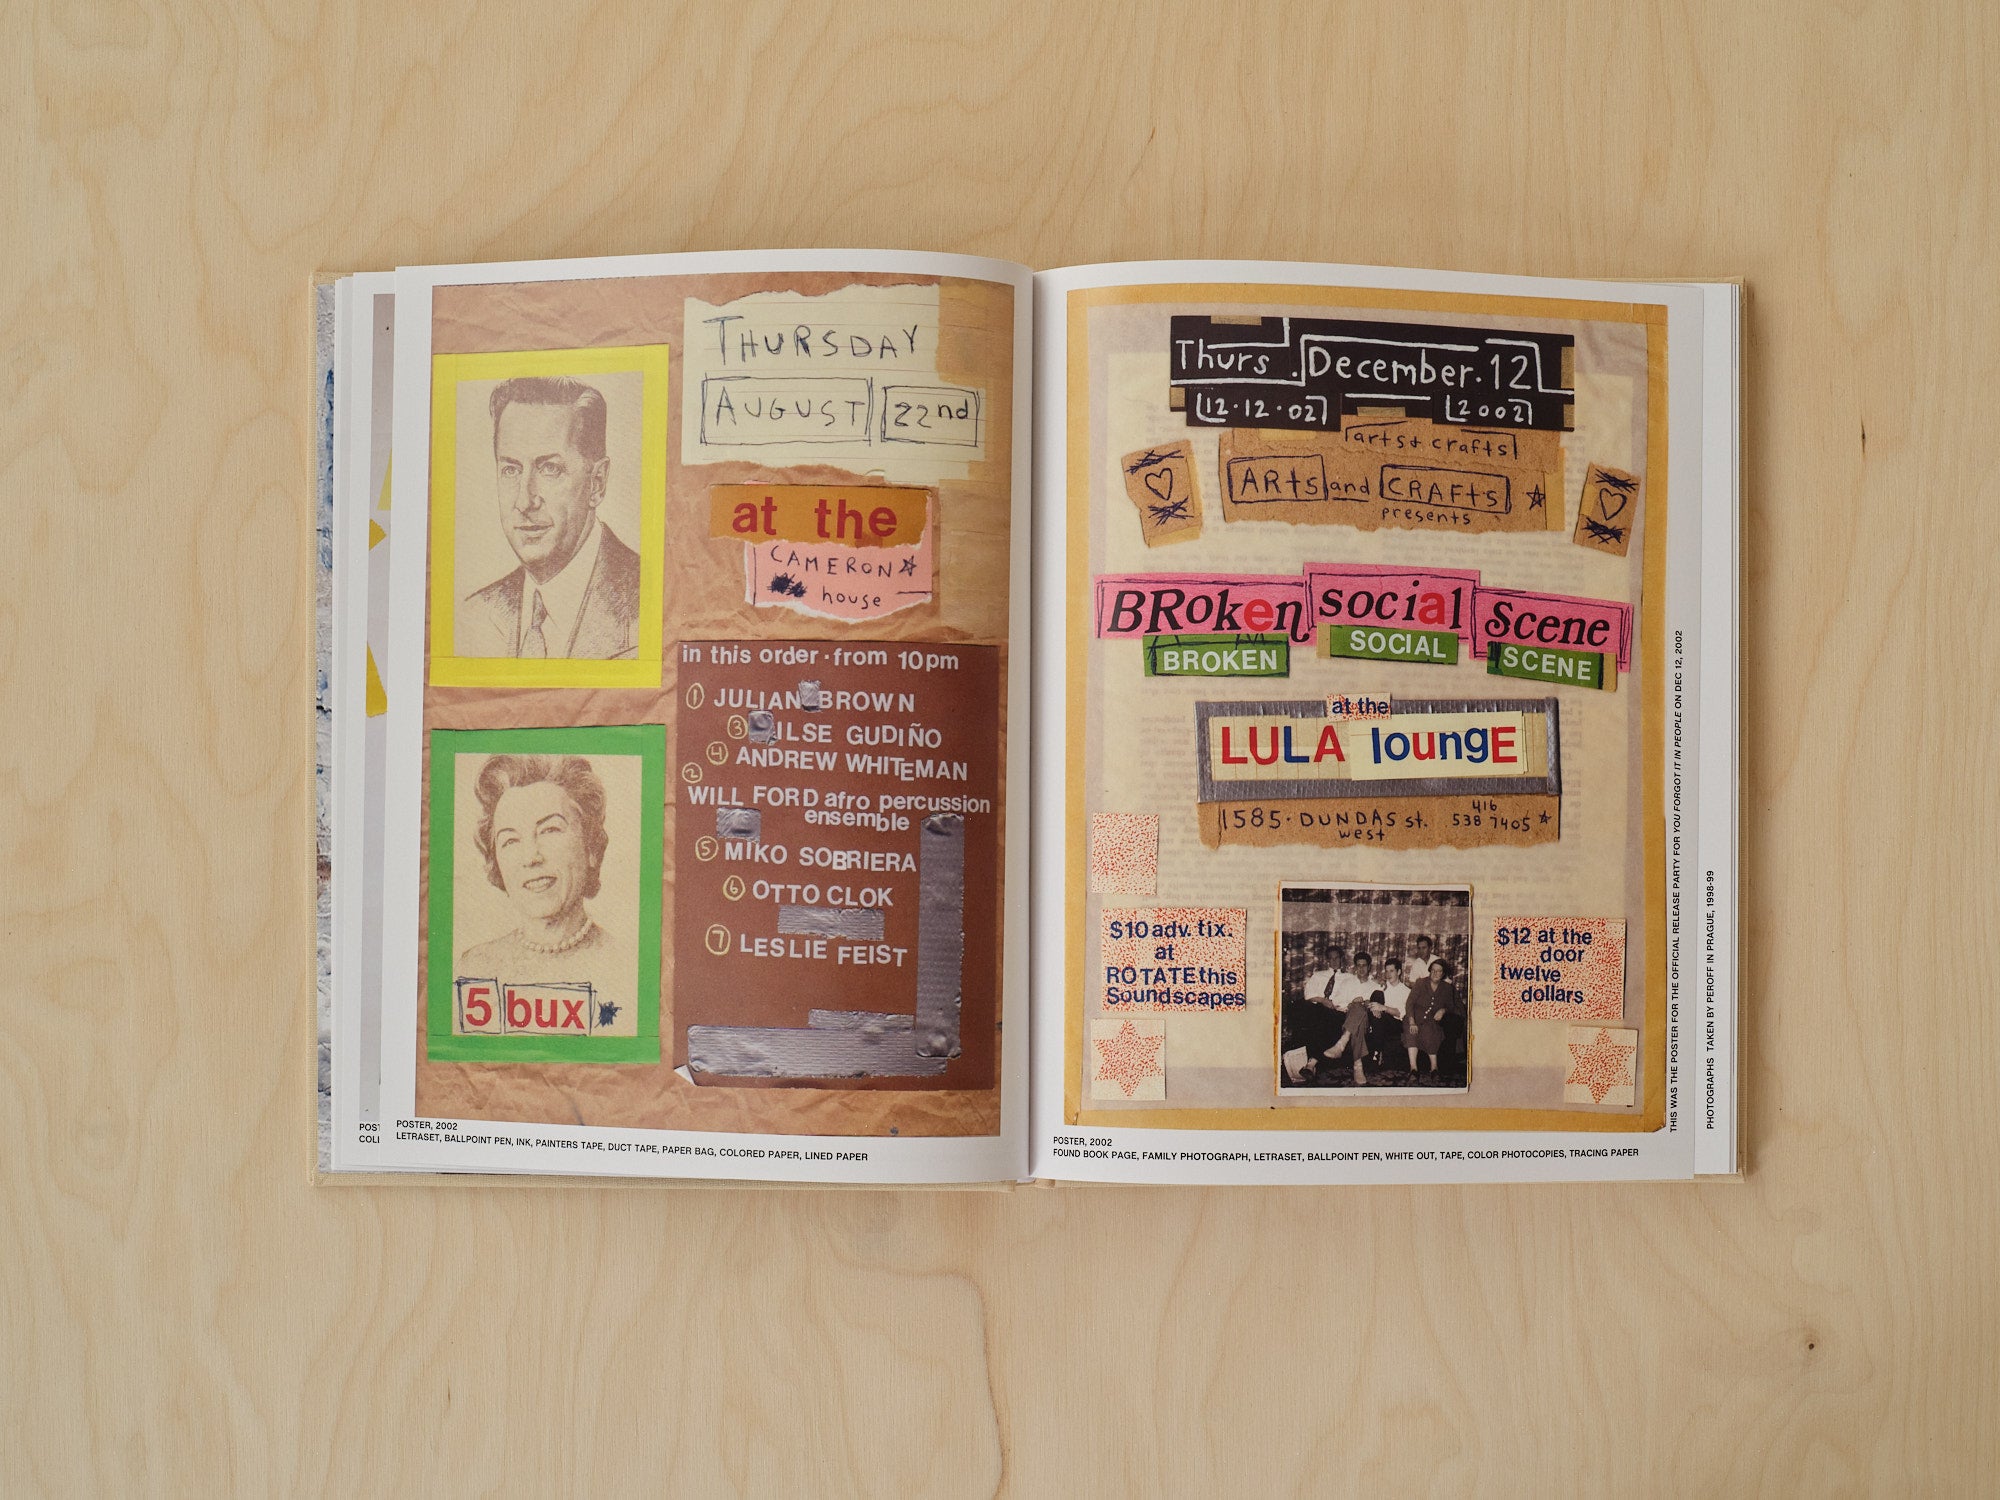 THURSDAY
AUGUST 22nd
at the
CAMERON
house
in this order · from 10pm
1 JULIAN BROWN
3 ILSE GUDIÑO
4 ANDREW WHITEMAN
2
WILL FORD afro percussion
ensemble
5 MIKO SOBRIERA
6 OTTO CLOK
7 LESLIE FEIST
5 bux
POSTER, 2002
LETRASET, BALLPOINT PEN, INK, PAINTERS TAPE, DUCT TAPE, PAPER BAG, COLORED PAPER, LINED PAPER
POST
COLL
Thurs. December. 12
12·12·02 2002
arts & crafts
ARts and CRAFts
presents
BRoken social scene
BROKEN SOCIAL SCENE
at the
LULA loungE
1585 · DUNDAS st. 416
west 538 7405
$10 adv. tix.
at
ROTATE this
Soundscapes
$12 at the
door
twelve
dollars
POSTER, 2002
FOUND BOOK PAGE, FAMILY PHOTOGRAPH, LETRASET, BALLPOINT PEN, WHITE OUT, TAPE, COLOR PHOTOCOPIES, TRACING PAPER
THIS WAS THE POSTER FOR THE OFFICIAL RELEASE PARTY FOR YOU FORGOT IT IN PEOPLE ON DEC 12, 2002
PHOTOGRAPHS TAKEN BY PEROFF IN PRAGUE, 1998-99